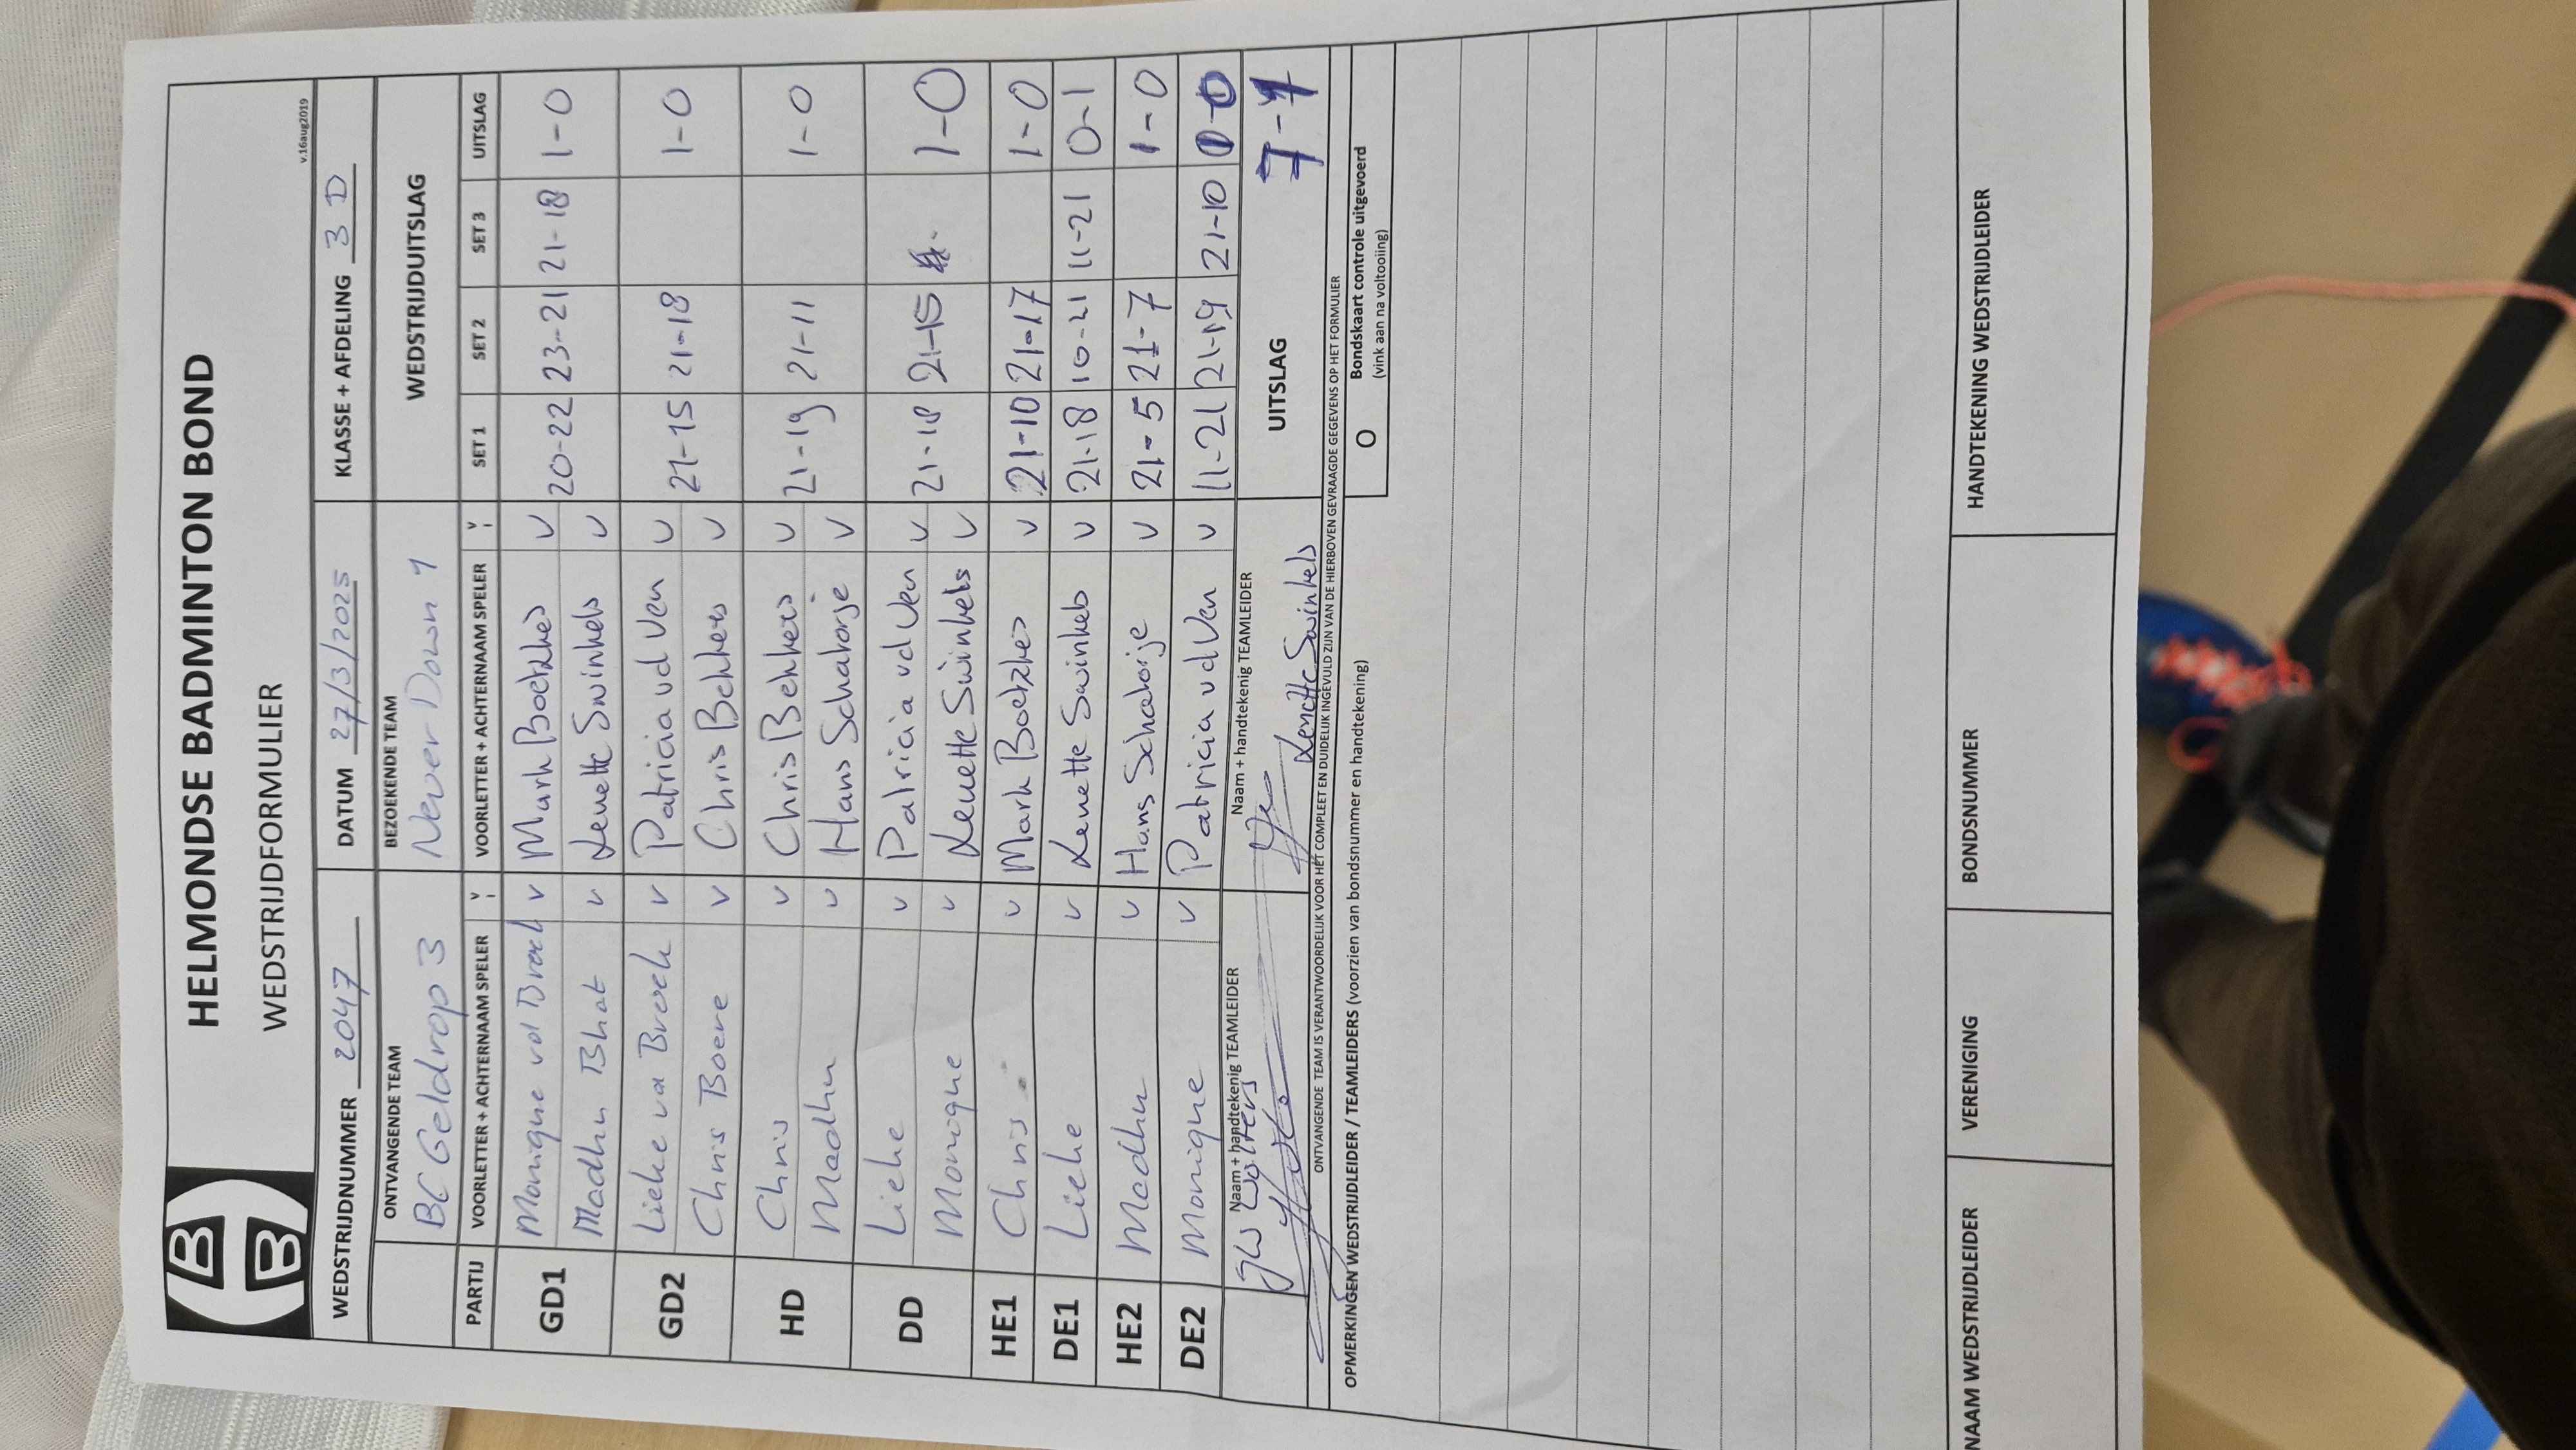 HELMONDSE BADMINTON BOND
WEDSTRIJDFORMULIER
v.16aug2019
WEDSTRIJDNUMMER 2047 DATUM 27/3/2025 KLASSE + AFDELING 3 D
ONTVANGENDE TEAM BEZOEKENDE TEAM WEDSTRIJDUITSLAG
BC Geldrop 3 Never Down 1
PARTIJ VOORLETTER + ACHTERNAAM SPELER V VOORLETTER + ACHTERNAAM SPELER V SET 1 SET 2 SET 3 UITSLAG
GD1 Monique vd Broek v Mark Boetzkes v 20-22 23-21 21-18 1-0
Madhu Bhat v Lenette Swinkels v
GD2 Lieke vd Broek v Patricia vd Ven v 21-15 21-18 1-0
Chris Boere v Chris Bekkers v
HD Chris v Chris Bekkers v 21-19 21-11 1-0
Madhu v Hans Schakorje v
DD Lieke v Patricia vd Ven v 21-18 21-15 1-0
Monique v Lenette Swinkels v
HE1 Chris v Mark Boetzkes v 21-10 21-17 1-0
DE1 Lieke v Lenette Swinkels v 21-18 10-21 11-21 0-1
HE2 Madhu v Hans Schakorje v 21-5 21-7 1-0
DE2 Monique v Patricia vd Ven v 11-21 21-19 21-10 1-0
Naam + handtekenig TEAMLEIDER Naam + handtekenig TEAMLEIDER UITSLAG 7-1
JW Wolters Lenette Swinkels
ONTVANGENDE TEAM IS VERANTWOORDELIJK VOOR HET COMPLEET EN DUIDELIJK INGEVULD ZIJN VAN DE HIERBOVEN GEVRAAGDE GEGEVENS OP HET FORMULIER
OPMERKINGEN WEDSTRIJDLEIDER / TEAMLEIDERS (voorzien van bondsnummer en handtekening) O Bondskaart controle uitgevoerd
(vink aan na voltooiing)
NAAM WEDSTRIJDLEIDER VERENIGING BONDSNUMMER HANDTEKENING WEDSTRIJDLEIDER